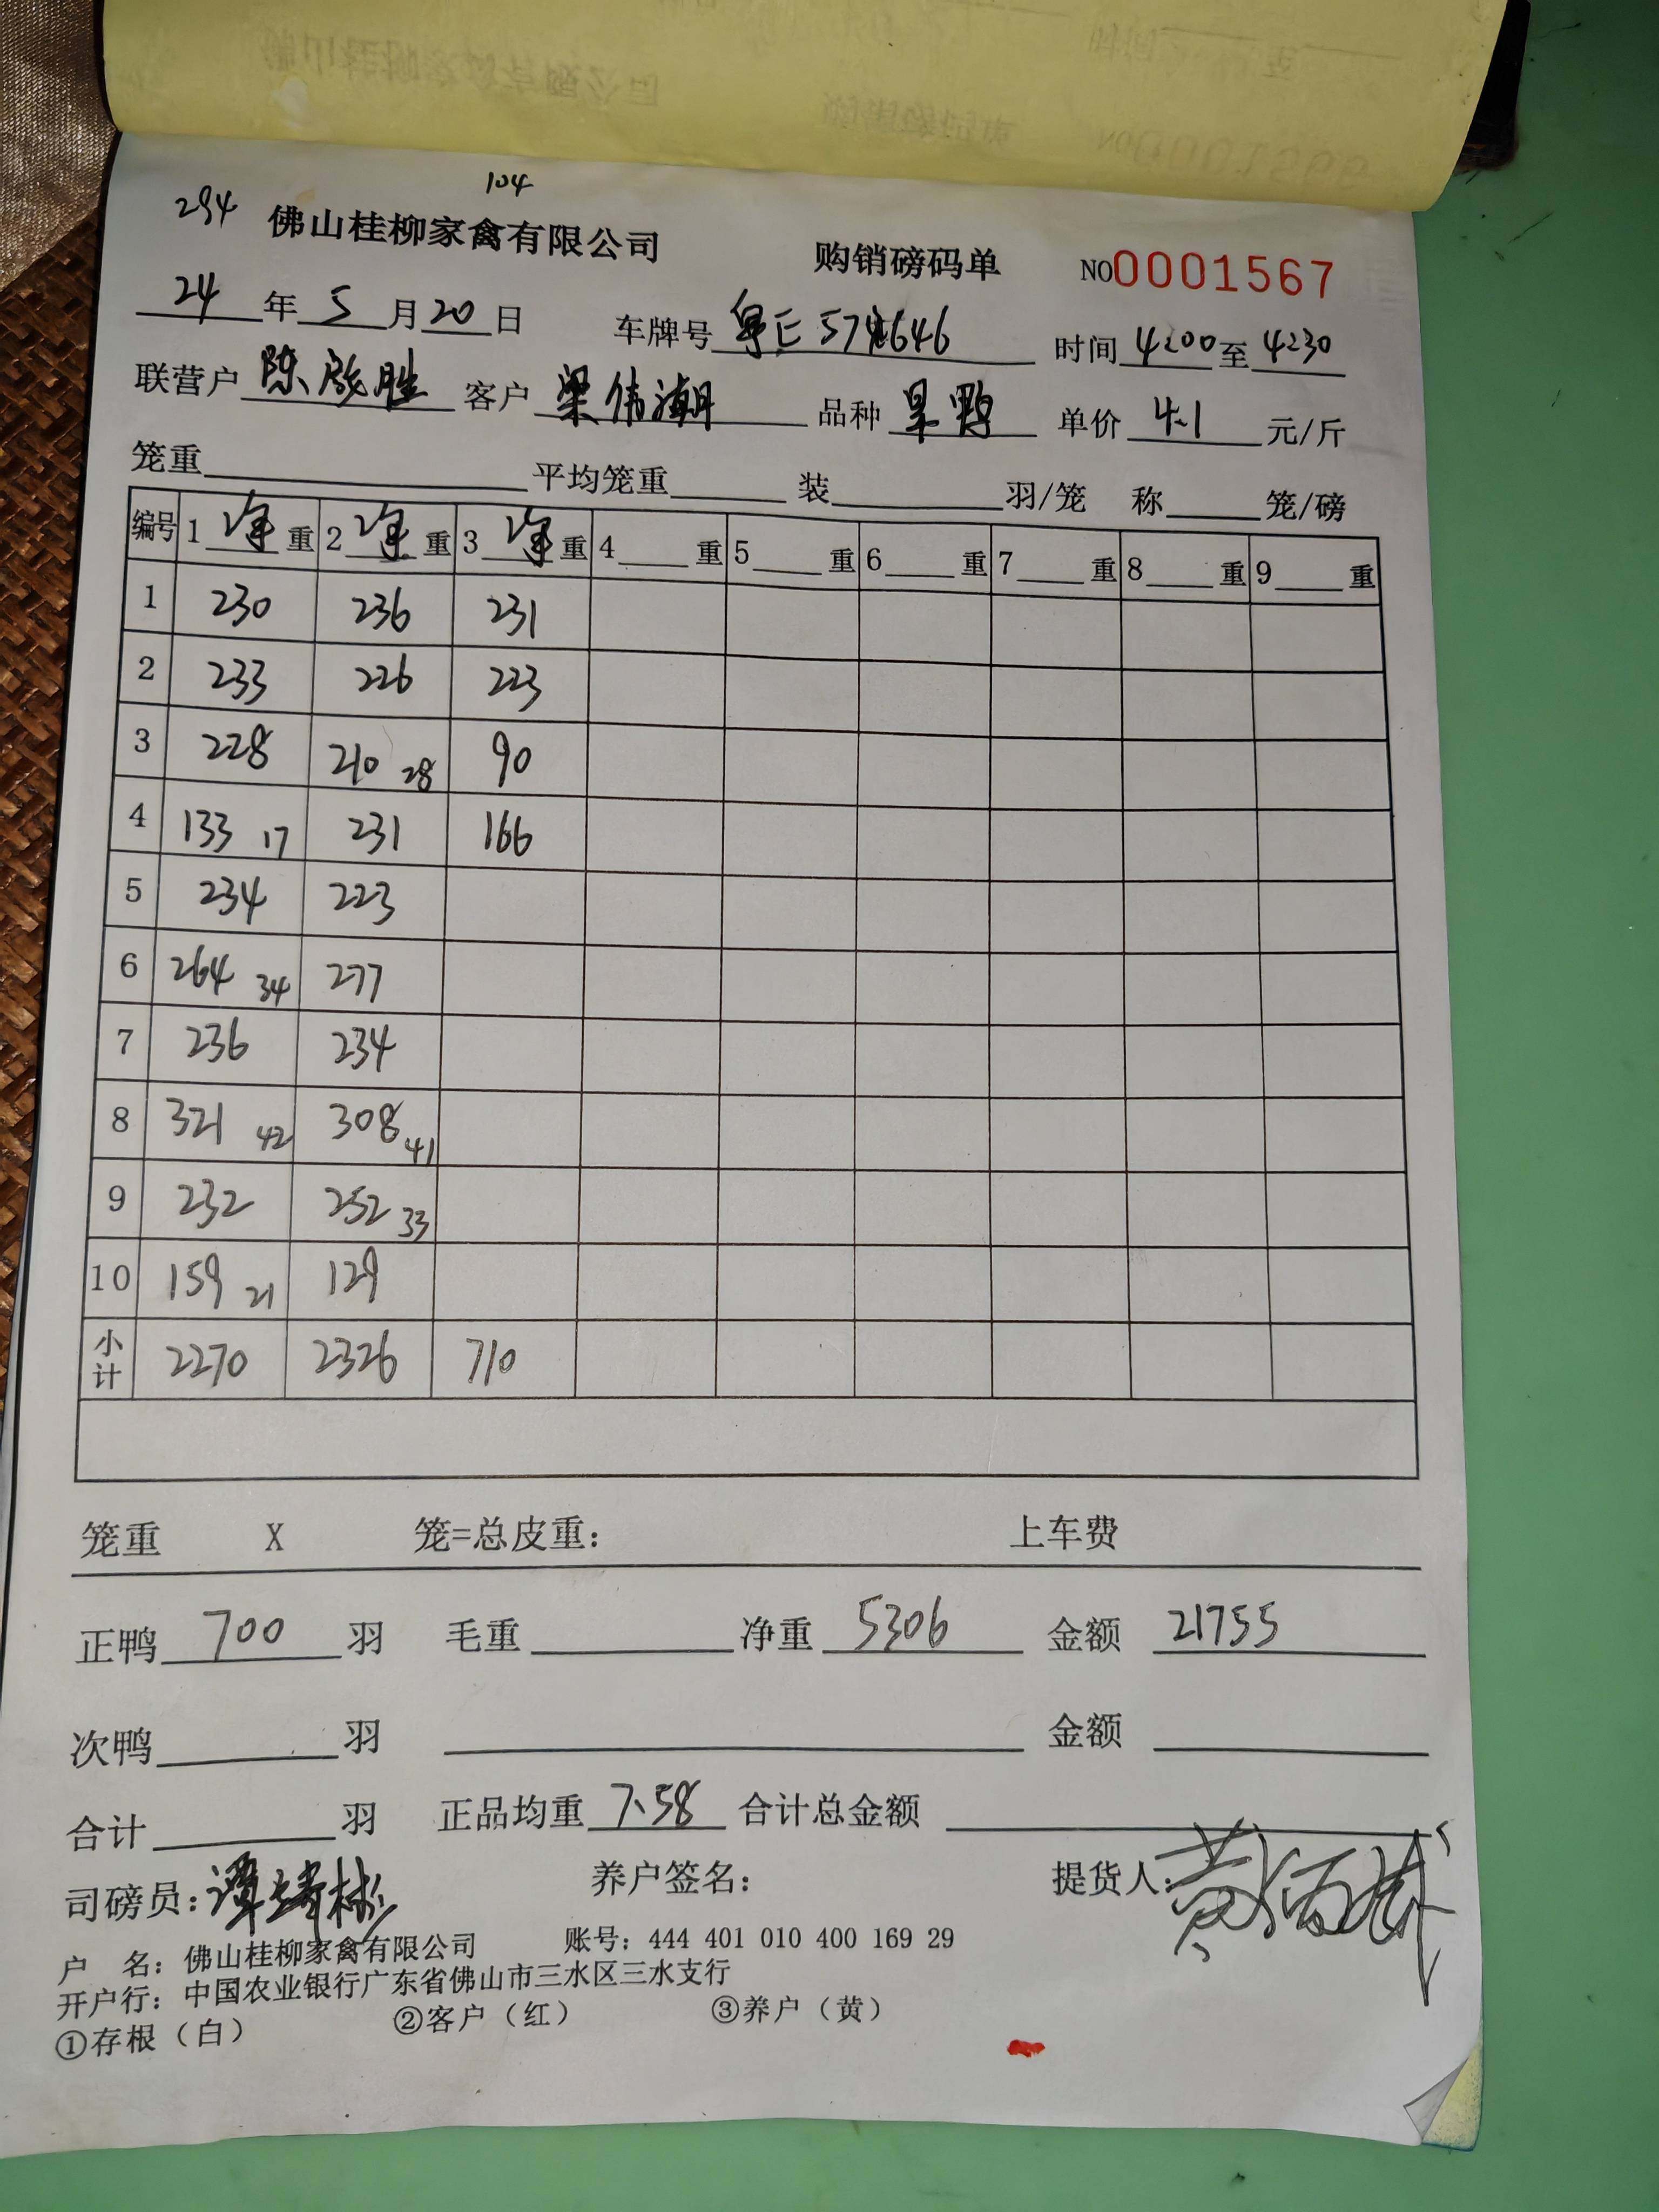 104
294 佛山桂柳家禽有限公司 购销磅码单 NO0001567
24 年 5 月 20 日 车牌号 粤E 574646 时间 4:00 至 4:30
联营户 陈 胜 客户 梁伟潮 品种 旱鸭 单价 4.1 元/斤
笼重 平均笼重 装 羽/笼 称 笼/磅
编号 1 净 重 2 净 重 3 净 重 4 重 5 重 6 重 7 重 8 重 9 重
1 230 236 231
2 233 226 223
3 228 210 28 90
4 133 17 231 166
5 234 223
6 264 34 277
7 236 234
8 321 42 308 41
9 232 252 33
10 159 21 129
小计 2270 2326 710
笼重 X 笼=总皮重: 上车费
正鸭 700 羽 毛重 净重 5306 金额 21755
次鸭 羽 金额
合计 羽 正品均重 7.58 合计总金额
司磅员: 谭 彬 养户签名: 提货人: 黄
户 名: 佛山桂柳家禽有限公司 账号: 444 401 010 400 169 29
开户行: 中国农业银行广东省佛山市三水区三水支行
①存根（白） ②客户（红） ③养户（黄）